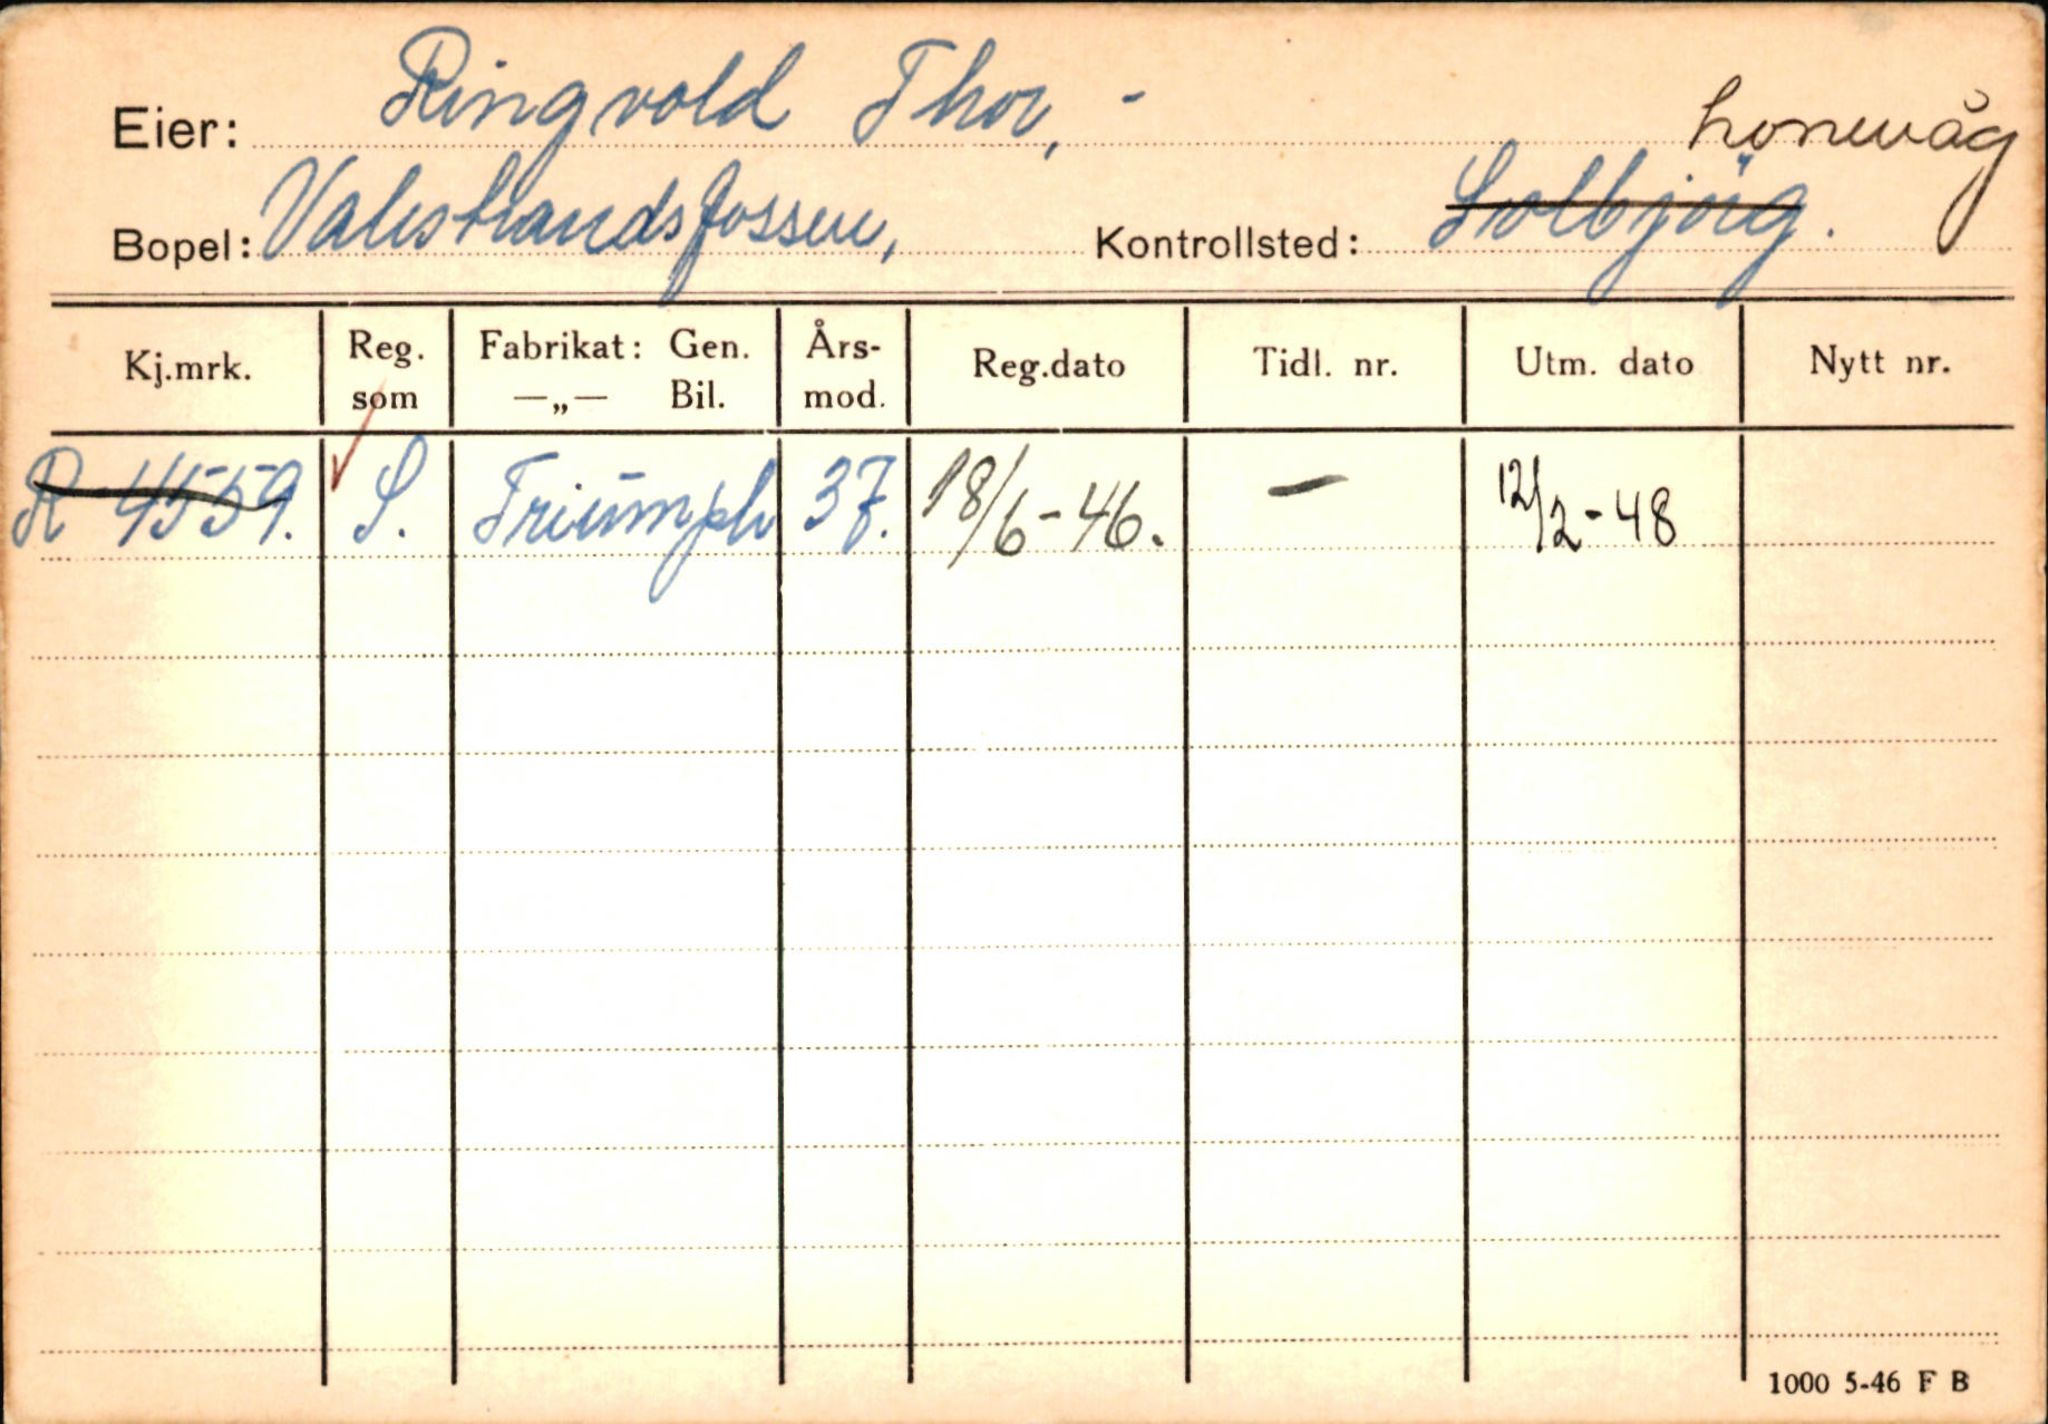 Eier: Ringvold Thor, -
Lonevåg
Bopel: Valestrandsfossen, Kontrollsted: Solbjörg.
Kj.mrk. Reg. som Fabrikat: Gen. —„— Bil. Års- mod. Reg.dato Tidl. nr. Utm. dato Nytt nr.
R 4559. S. Triumph 37. 18/6-46. — 12/2-48
1000 5-46 F B